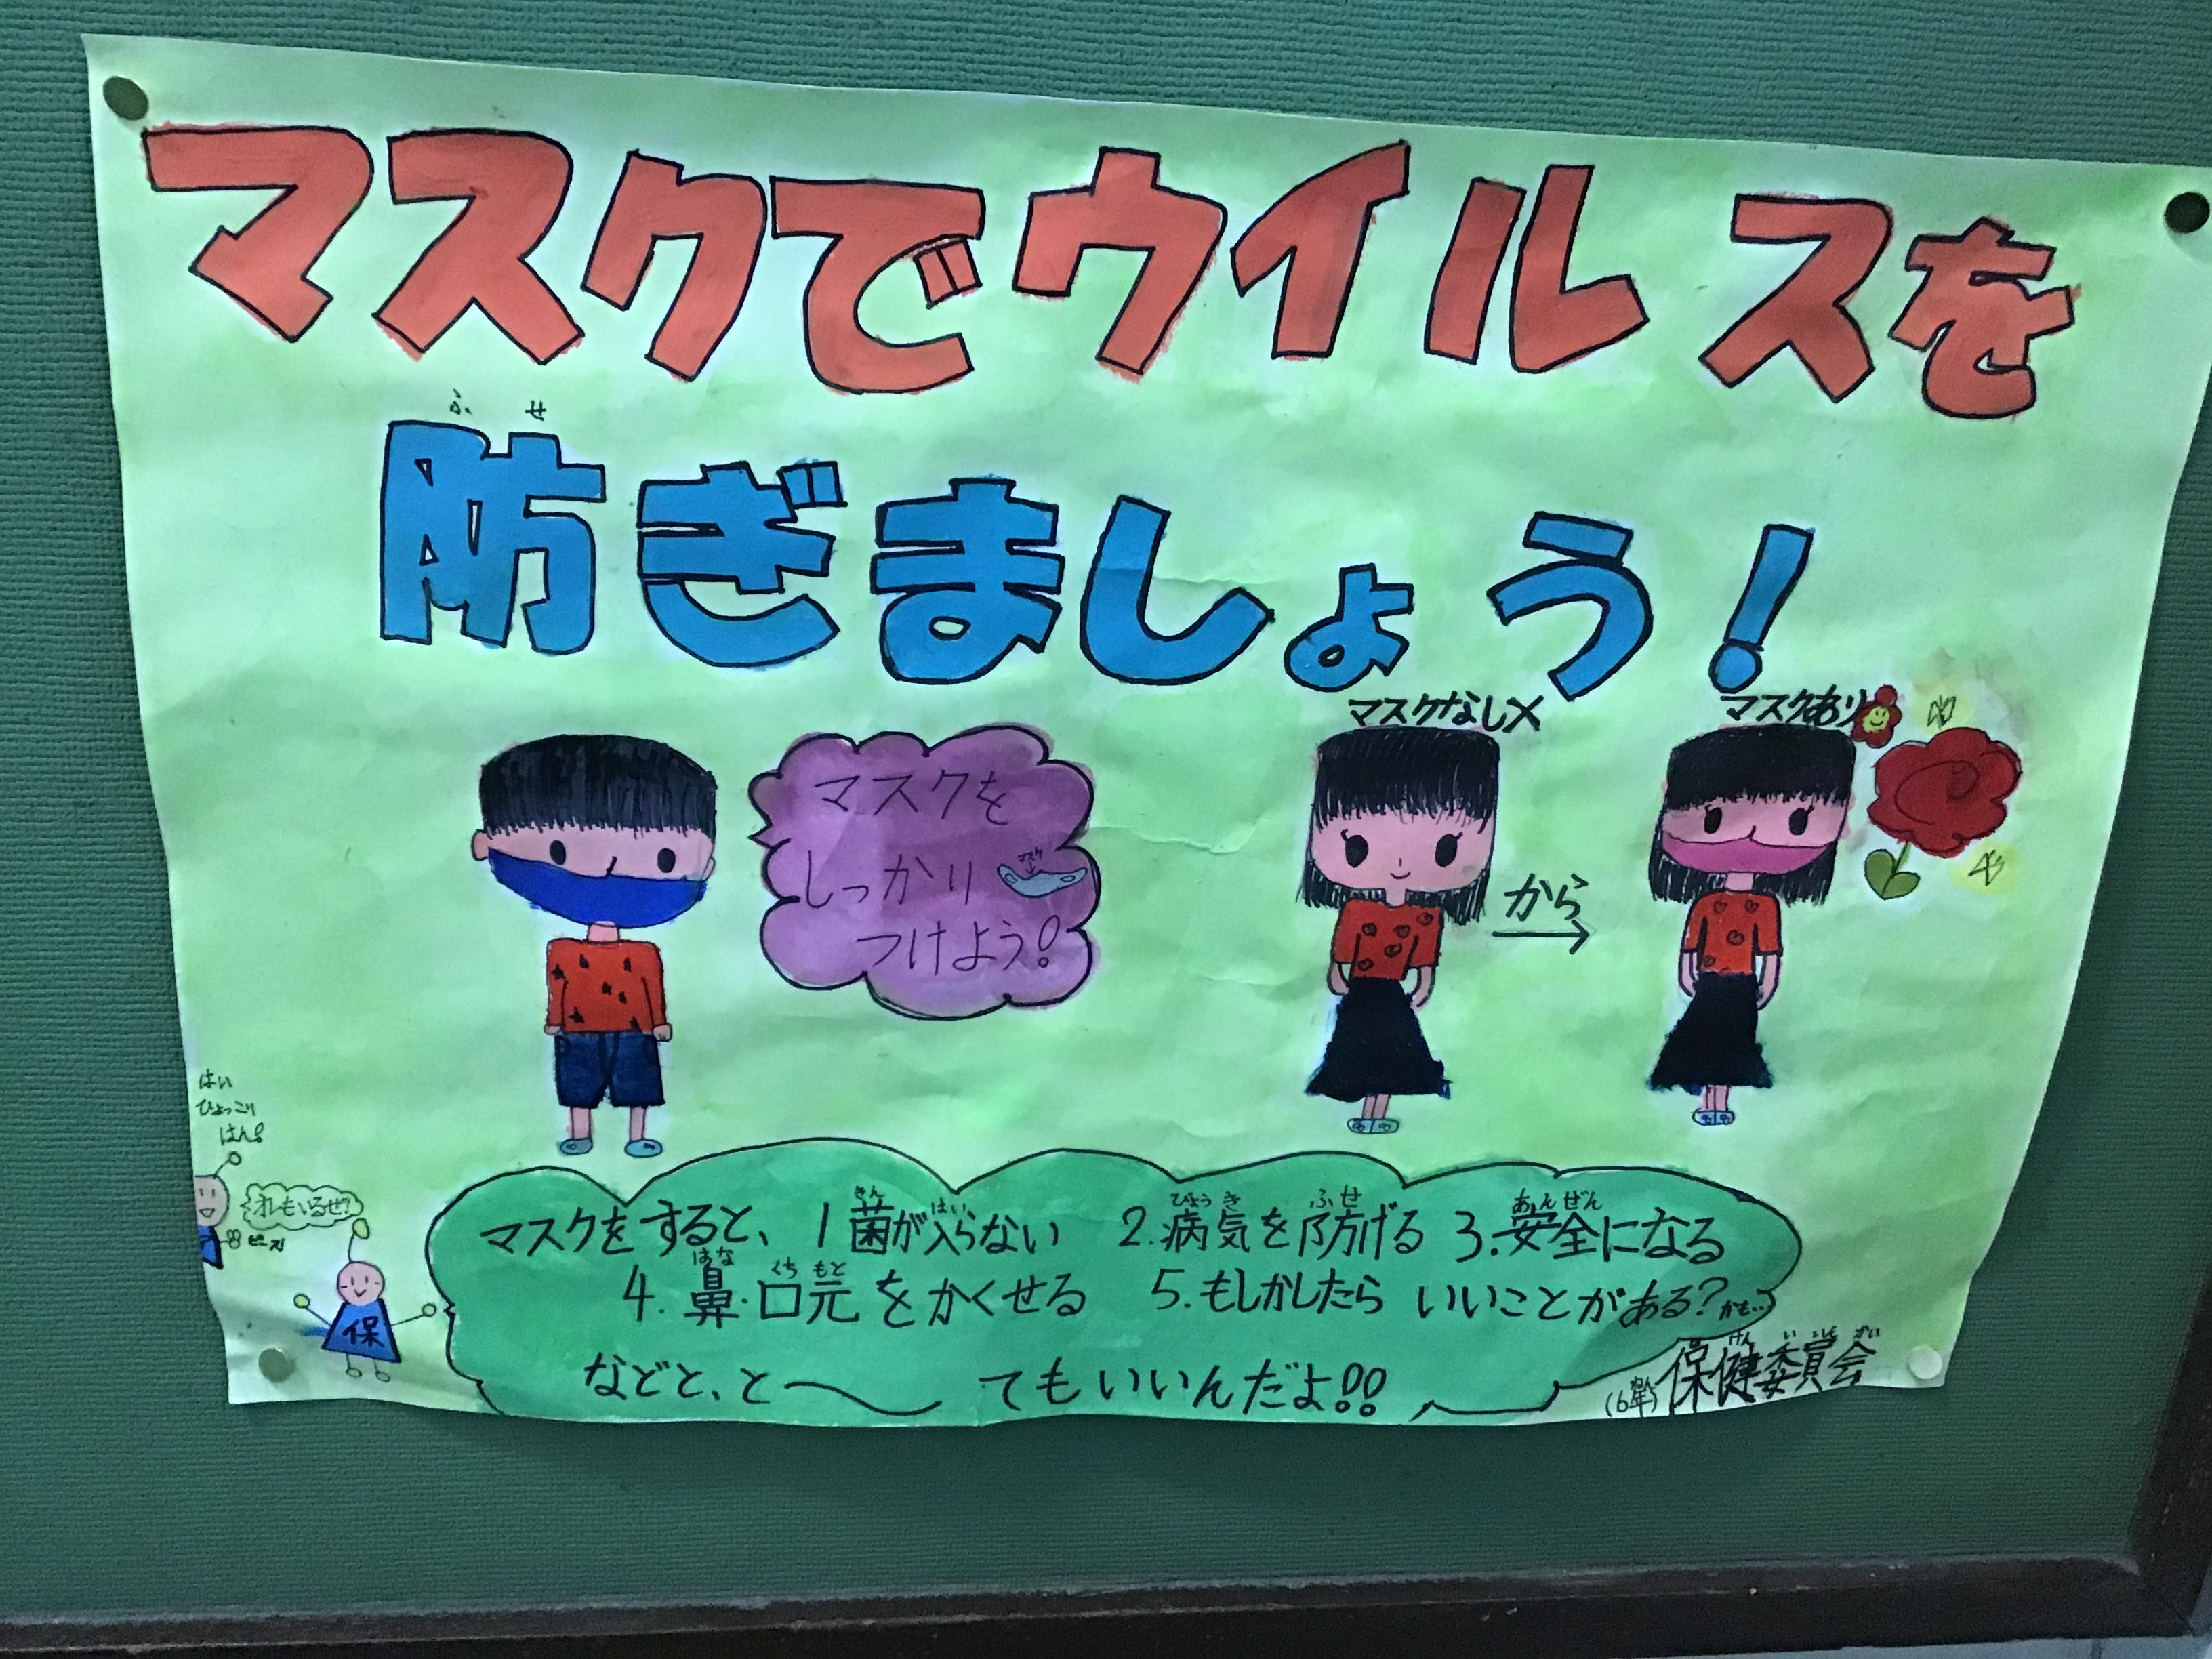 マスクでウイルスを
ふせ
防ぎましょう!
マスクなし×
マスクあり
マスクを
しっかり
マスク
つけよう!
から
はい
ひょっこり
はん!
オレもいるぜ!
ピース
保
きん はい びょうき ふせ あんぜん
マスクをすると、1菌が入らない 2.病気を防げる 3.安全になる
はな くちもと
4.鼻・口元をかくせる 5.もしかしたらいいことがある?かも…
などと、と〜てもいいんだよ!!
(6年)保健委員会